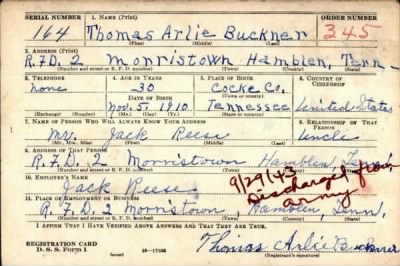 SERIAL NUMBER 1. NAME (Print) ORDER NUMBER
164 Thomas Arlie Buckner 345
(First) (Middle) (Last)
2. ADDRESS (Print)
R.F.D. 2 Morristown Hamblen, Tenn.
(Number and street or R. F. D. number) (Town) (County) (State)
3. TELEPHONE 4. AGE IN YEARS 5. PLACE OF BIRTH 6. COUNTRY OF CITIZENSHIP
none 30 Cocke Co.
DATE OF BIRTH (Town or county)
Nov. 5, 1910 Tennessee United States
(Exchange) (Number) (Mo.) (Day) (Yr.) (State or country)
7. NAME OF PERSON WHO WILL ALWAYS KNOW YOUR ADDRESS 8. RELATIONSHIP OF THAT PERSON
Mr. Jack Reese Uncle
(Mr., Mrs., Miss) (First) (Middle) (Last)
9. ADDRESS OF THAT PERSON
R.F.D. 2 Morristown Hamblen, Tenn.
(Number and street or R. F. D. number) (Town) (County) (State)
10. EMPLOYER'S NAME
Jack Reese
9/29/43 Discharged from army
11. PLACE OF EMPLOYMENT OR BUSINESS
R.F.D. 2 Morristown Hamblen, Tenn.
(Number and street or R. F. D. number) (Town) (County) (State)
I AFFIRM THAT I HAVE VERIFIED ABOVE ANSWERS AND THAT THEY ARE TRUE.
REGISTRATION CARD
D. S. S. Form 1 (over) 16—17105 Thomas Arlie Buckner